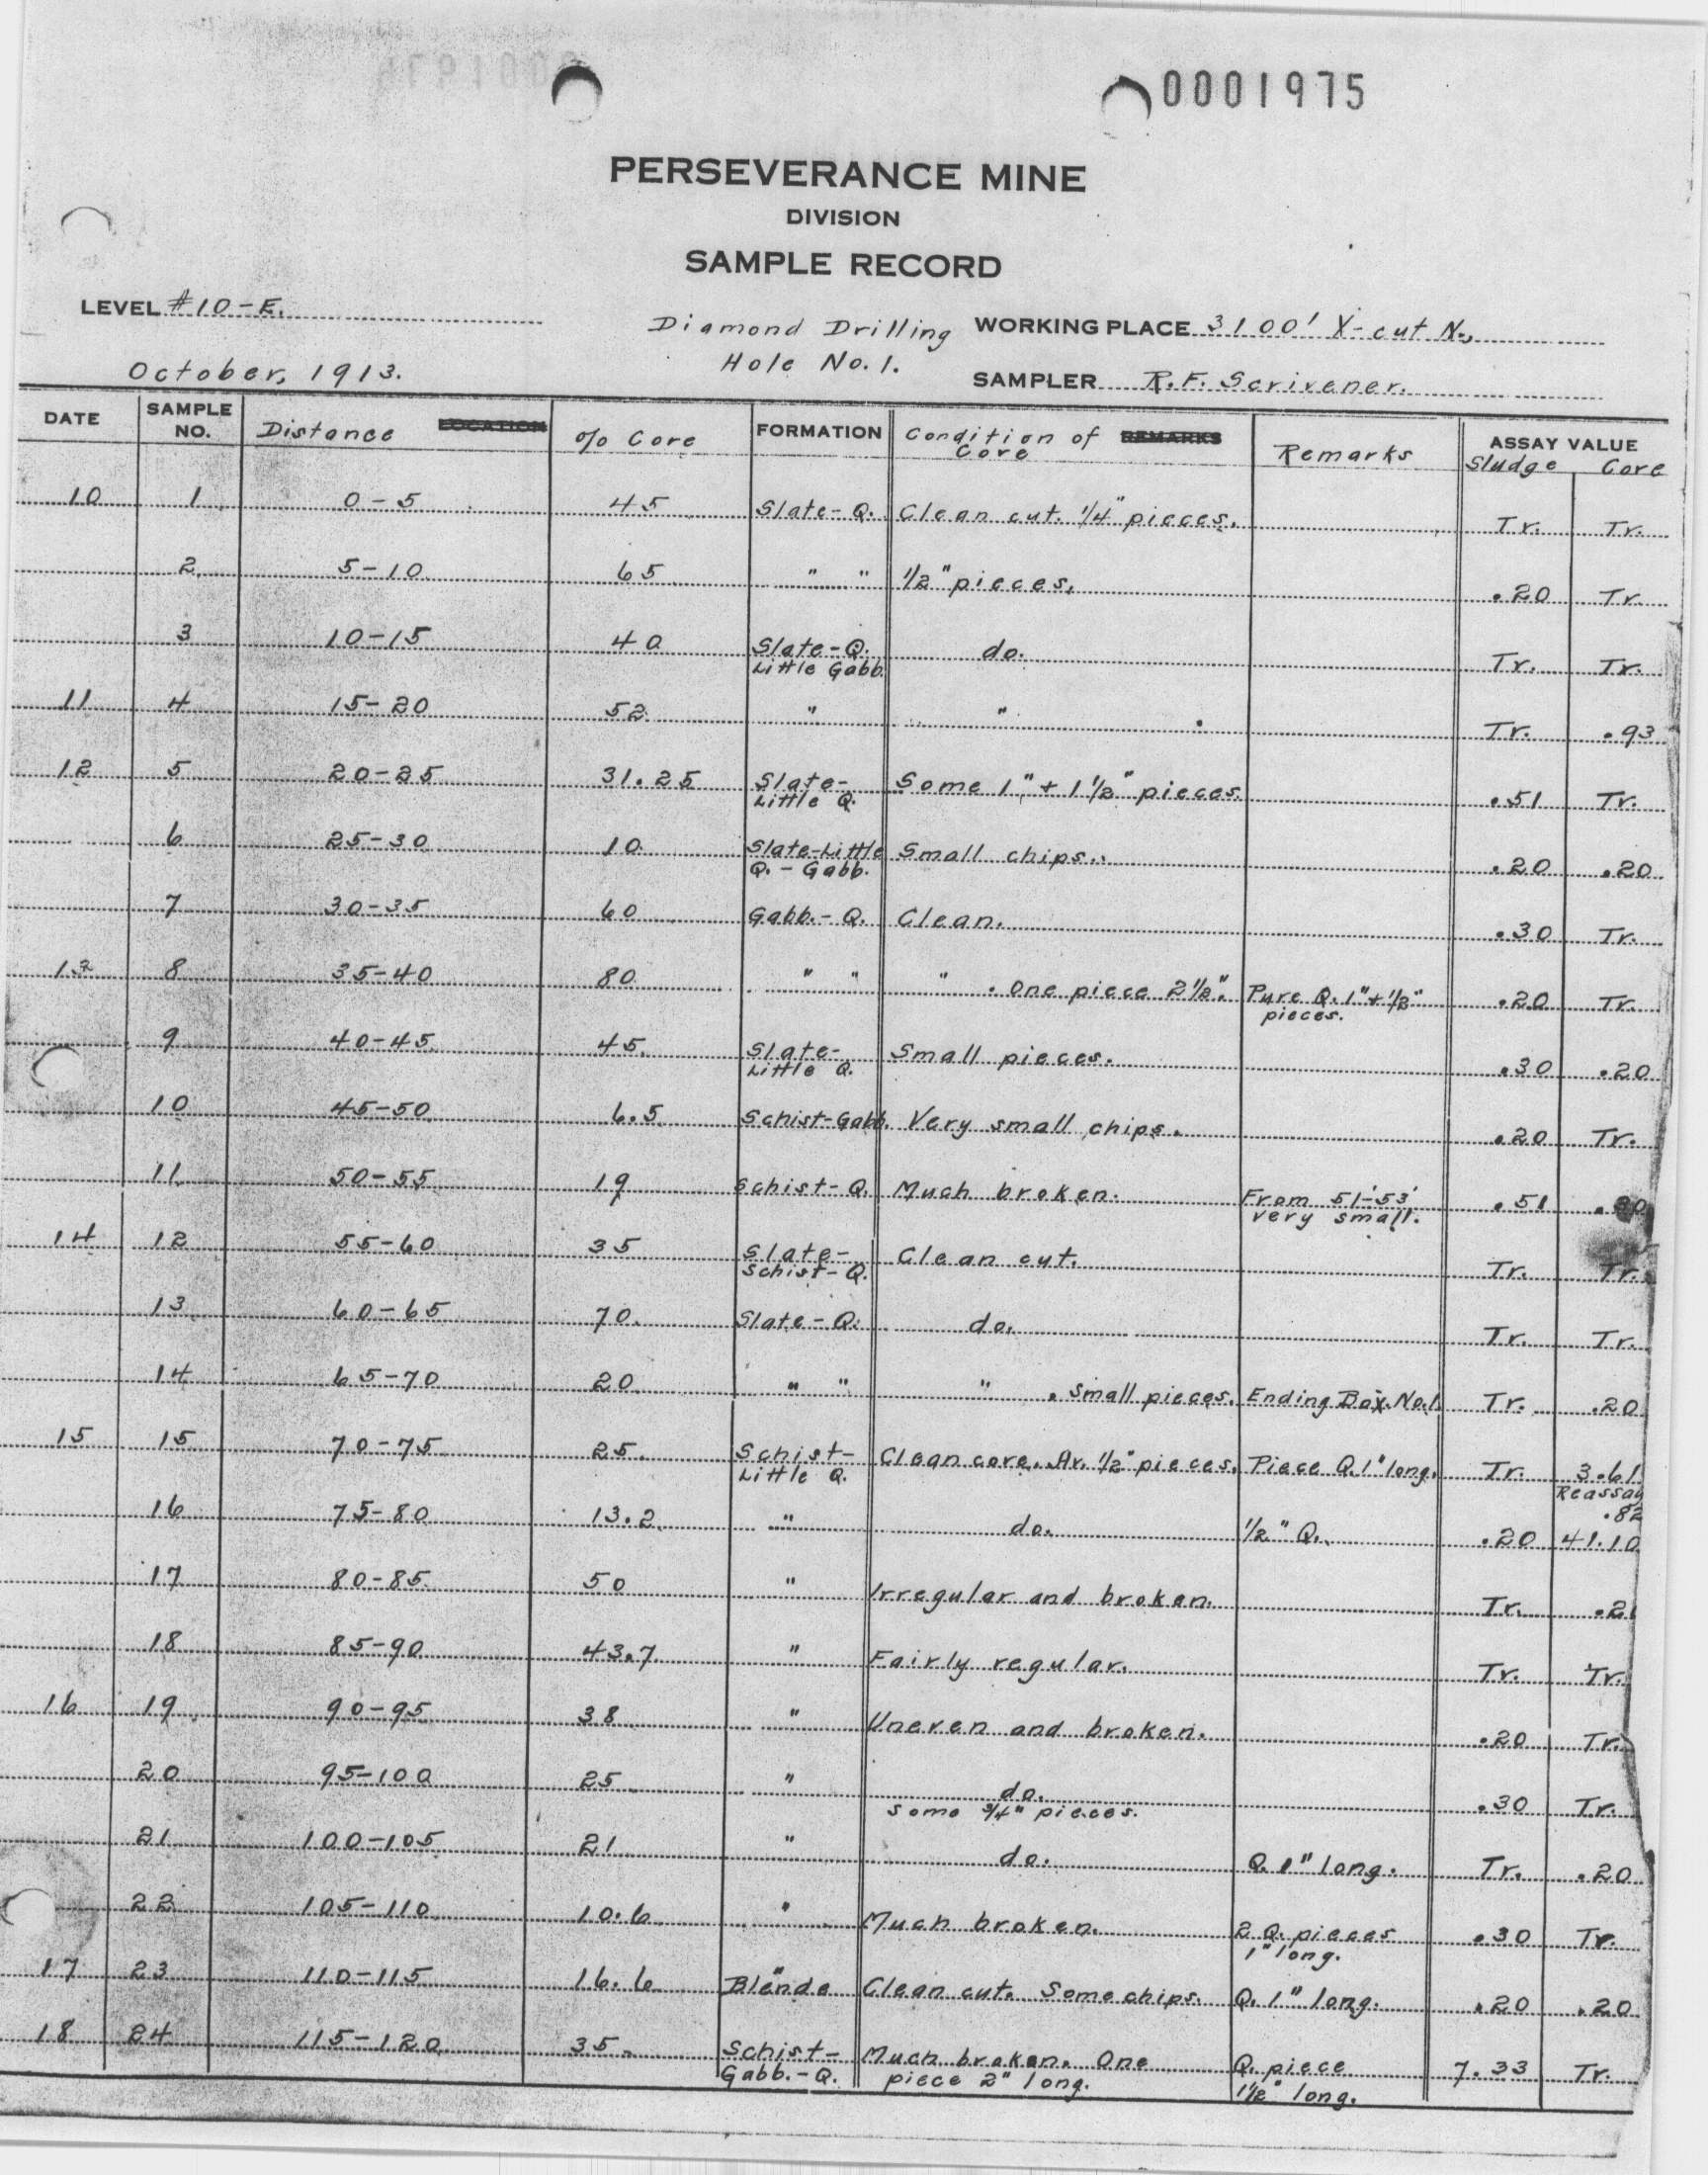 0001975
PERSEVERANCE MINE
DIVISION
SAMPLE RECORD
LEVEL #10-E.
Diamond Drilling WORKING PLACE 3100' X-cut N.
Hole No. 1.
October, 1913. SAMPLER R.F. Scrivener.
DATE SAMPLE NO. Distance LOCATION % Core FORMATION Condition of Core REMARKS Remarks ASSAY VALUE Sludge Core
10 1 0-5 45 Slate-Q. Clean cut. 1/4" pieces. Tr. Tr.
2 5-10 65 " " 1/2" pieces. .20 Tr.
3 10-15 40 Slate-Q. do. Tr. Tr.
Little Gabb.
11 4 15-20 52 " " Tr. .93
12 5 20-25 31.25 Slate- Some 1" + 1 1/2" pieces. .51 Tr.
Little Q.
6 25-30 10 Slate-Little Small chips. .20 .20
Q. - Gabb.
7 30-35 60 Gabb.-Q. Clean. .30 Tr.
13 8 35-40 80 " " " . One piece 2 1/2". Pure Q. 1" + 1/2" .20 Tr.
pieces.
9 40-45 45 Slate- Small pieces. .30 .20
Little Q.
10 45-50 6.5 Schist-Gabb. Very small chips. .20 Tr.
11 50-55 19 Schist-Q. Much broken. From 51'-53' .51
very small.
14 12 55-60 35 Slate- Clean cut. Tr. Tr.
Schist-Q.
13 60-65 70 Slate-Q. do. Tr. Tr.
14 65-70 20 " " " . Small pieces. Ending Box No.1. Tr. .20
15 15 70-75 25. Schist- Clean core. Av. 1/2" pieces. Piece Q. 1" long. Tr. 3.61
Little Q. Reassay
.82
16 75-80 13.2 " do. 1/2" Q. .20 41.10
17 80-85 50 " Irregular and broken. Tr. .21
18 85-90 43.7 " Fairly regular. Tr. Tr.
16 19 90-95 38 " Uneven and broken. .20 Tr.
20 95-100 25 " do. .30 Tr.
Some 3/4" pieces.
21 100-105 21 " do. Q. 1" long. Tr. .20
22 105-110 10.6 " Much broken. 2 Q. pieces .30 Tr.
1" long.
17 23 110-115 16.6 " Blende Clean cut. Some chips. Q. 1" long. .20 .20
18 24 115-120 35. Schist- Much broken. One Q. piece 7.33 Tr.
Gabb.-Q. piece 2" long. 1 1/2" long.